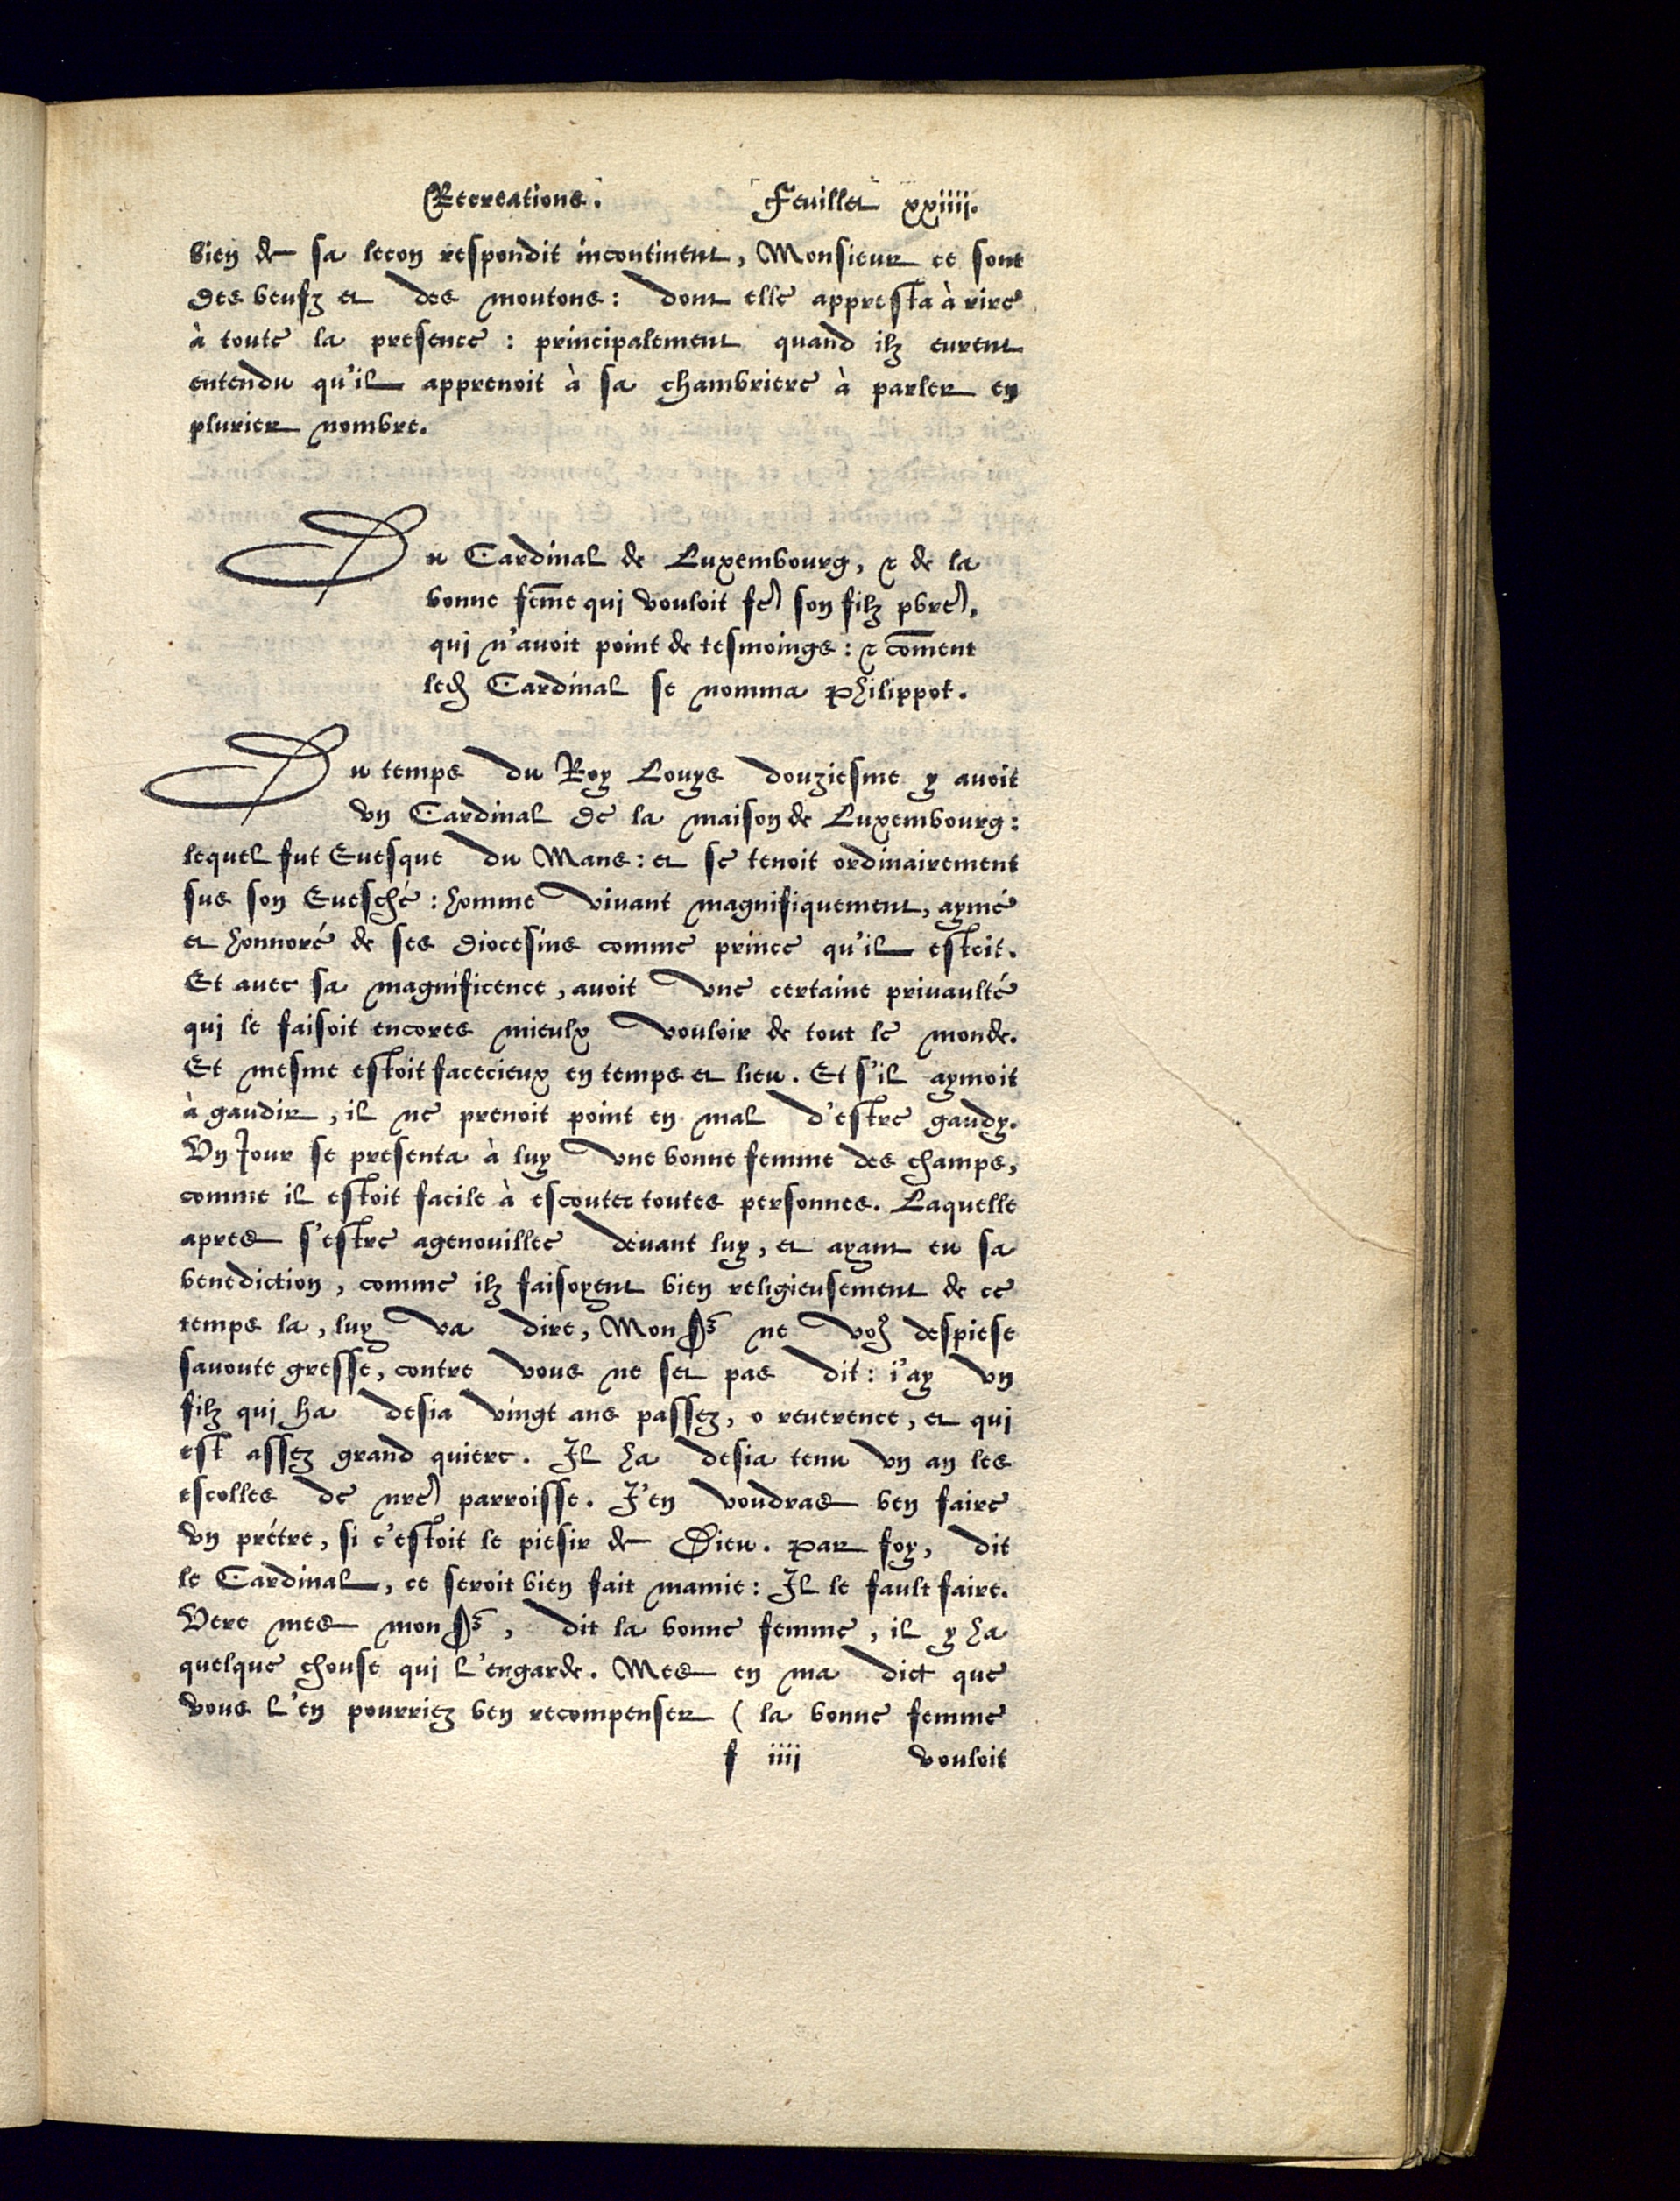 Recreations. Feuillet xxiiii.
bien de sa lecon respondit incontinent, Monsieur ce sont
des beufz et des moutons: dont elle appresta à rire
à toute la presence : principalement quand ilz eurent
entendu qu'il apprenoit à sa chambriere à parler en
plurier nombre.
Du Cardinal de Luxembourg, & de la
bonne fēme qui vouloit fe͛ son filz pbre͛,
qui n'auoit point de tesmoings : & cōment
led Cardinal se nomma Philippot.
Du temps du Roy Louys douziesme y auoit
vn Cardinal de la maison de Luxembourg:
lequel fut Euesque du Mans: et se tenoit ordinairement
sus son Euesché : homme viuant magnifiquement, aymé
et honnoré de ses diocesins comme prince qu'il estoit.
Et auec sa magnificence, auoit vne certaine priuaulté
qui le faisoit encores mieulx vouloir de tout le monde.
Et mesme estoit facecieux en temps et lieu. Et s'il aymoit
à gaudir, il ne prenoit point en mal d'estre gaudy.
Vn Jour se presenta à luy vne bonne femme des champs,
comme il estoit facile à escouter toutes personnes. Laquelle
apres s'estre agenouillee deuant luy, et ayant eu sa
benediction, comme ilz faisoyent bien religieusement de ce
temps la, luy va dire, Mon Sr ne voꝰ despiese
sauoute gresse, contre vous ne set pas dit: i'ay vn
filz qui ha desia vingt ans passez, o reuerence, et qui
est assez grand quiere. Il ha desia tenu vn an les
escolles de nre͛ parroisse. J'en voudras ben faire
vn prétre, si c'estoit le piesir de Dieu. Par foy, dit
le Cardinal, ce seroit bien fait mamie: Il le fault faire.
Vere mes mon Sr, dit la bonne femme, il y ha
quelque chouse qui l'engarde. Mes en ma dict que
vous l'en pourriez ben recompenser (la bonne femme
f iiii vouloit